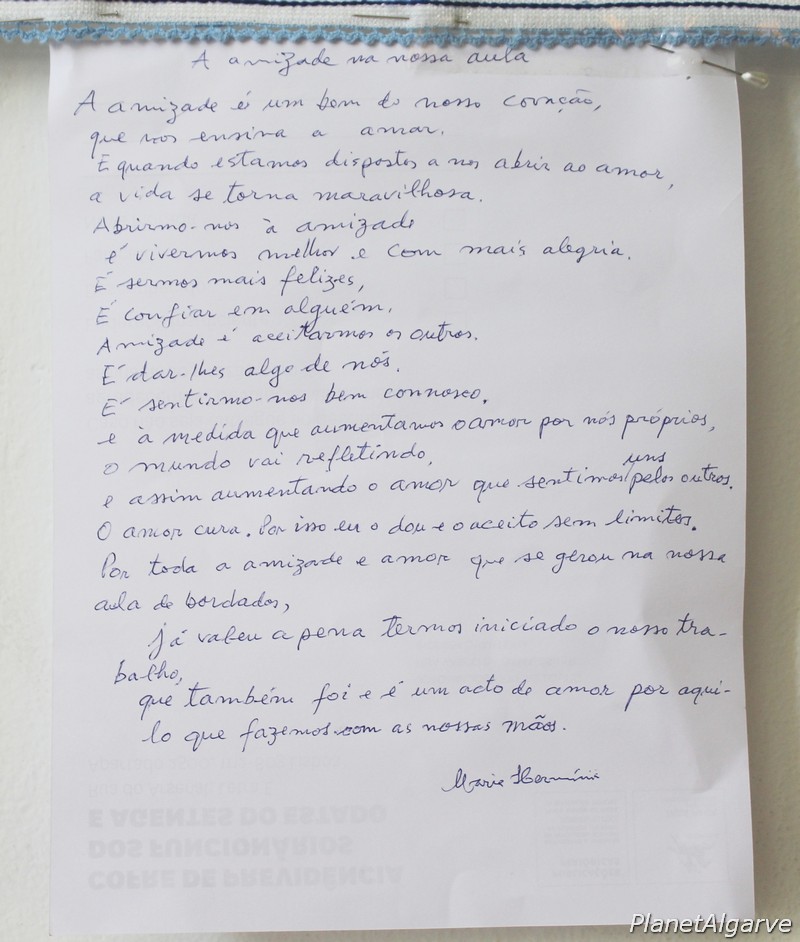 A amizade na nossa aula
A amizade é um bem do nosso coração,
que nos ensina a amar.
E quando estamos dispostos a nos abrir ao amor,
a vida se torna maravilhosa.
Abrirmo-nos à amizade
é vivermos melhor e com mais alegria.
É sermos mais felizes,
É confiar em alguém.
Amizade é aceitarmos os outros.
É dar-lhes algo de nós.
É sentirmo-nos bem connosco.
e à medida que aumentamos o amor por nós próprios,
o mundo vai refletindo,
uns
e assim aumentando o amor que sentimos pelos outros.
O amor cura. Por isso eu o dou e o aceito sem limites.
Por toda a amizade e amor que se gerou na nossa
aula de bordados,
já valeu a pena termos iniciado o nosso tra-
balho,
que também foi e é um acto de amor por aqui-
lo que fazemos com as nossas mãos.
Maria Hermínia
E AGENTES DO ESTADO
DOS FUNCIONÁRIOS
COFRE DE PREVIDÊNCIA
PlanetAlgarve